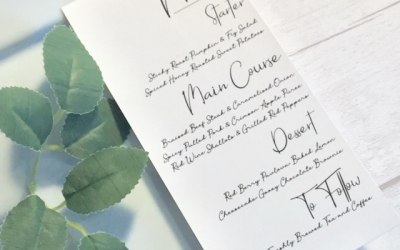 Starter
Sticky Roast Pumpkin & Fig Salad
Spiced Honey Roasted Sweet Potatoes
Main Course
Braised Beef Steak & Caramelised Onion
Spicy Pulled Pork & Crimson Apple Puree
Red Wine Shallots & Grilled Red Peppers
Dessert
Red Berry Pavlova Baked Lemon
Cheesecake Gooey Chocolate Brownie
To Follow
Freshly Brewed Tea and Coffee